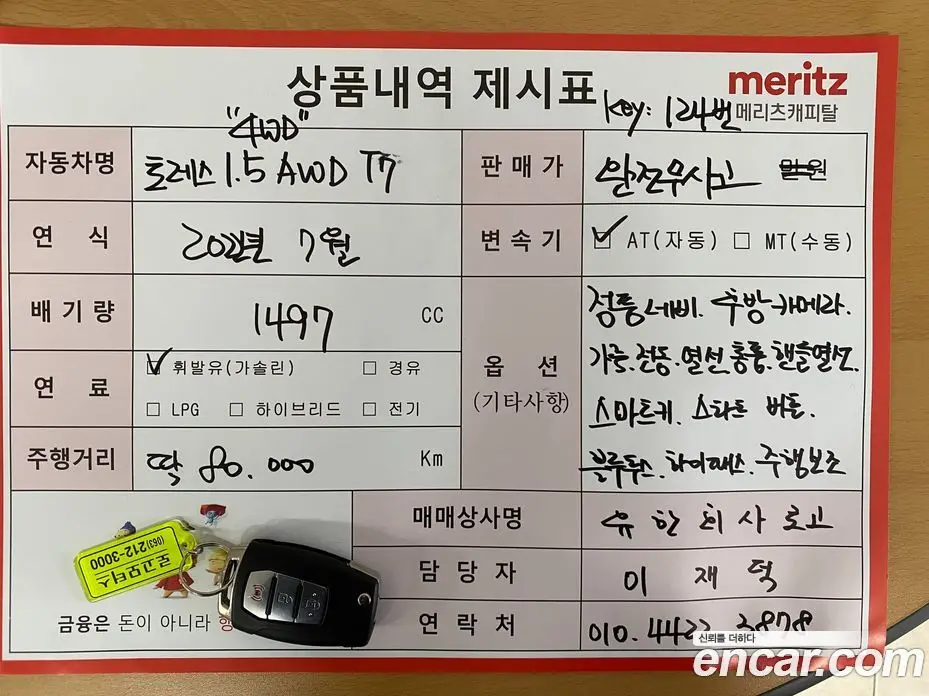 상품내역 제시표
meritz
메리츠캐피탈
key: 124번
"4WD"
자동차명
토레스 1.5 AWD T7
판매가
완전무사고
만원
연 식
2022년 7월
변속기
AT(자동) MT(수동)
배기량
1497 CC
연 료
휘발유(가솔린) 경유
LPG 하이브리드 전기
주행거리
딱 80.000 Km
옵 션
(기타사항)
정품네비. 후방카메라.
가죽.전동.열선통풍.핸들열선.
스마트키. 스타트 버튼.
블루투스. 하이패스. 주행보조
매매상사명
유한회사 로고
담당자
이 재덕
연락처
010. 4422 3878
로고모터스
(063)212-3000
금융은 돈이 아니라
신뢰를 더하다
encar.com